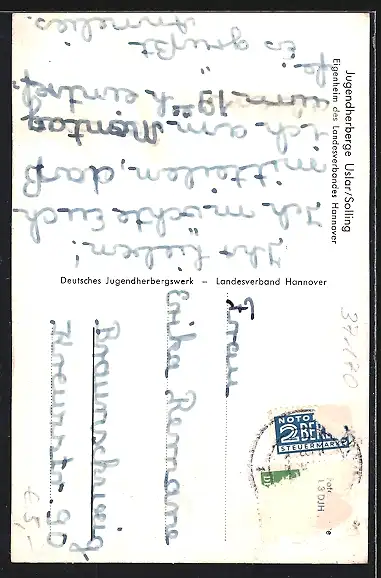 Jugendherberge Uslar/Solling
Eigenheim des Landesverbandes Hannover
Ihr Lieben!
Ich möchte Euch
mitteilen, daß
ich am Montag
um 19⁰⁰ h eintref-
fe.
Es grüßt
Annelies.
Deutsches Jugendherbergswerk – Landesverband Hannover
Frau
Erika
Braunschweig
90
NOTO
2 BERL
STEUERMARKE
L3 DJH
€ 5,-